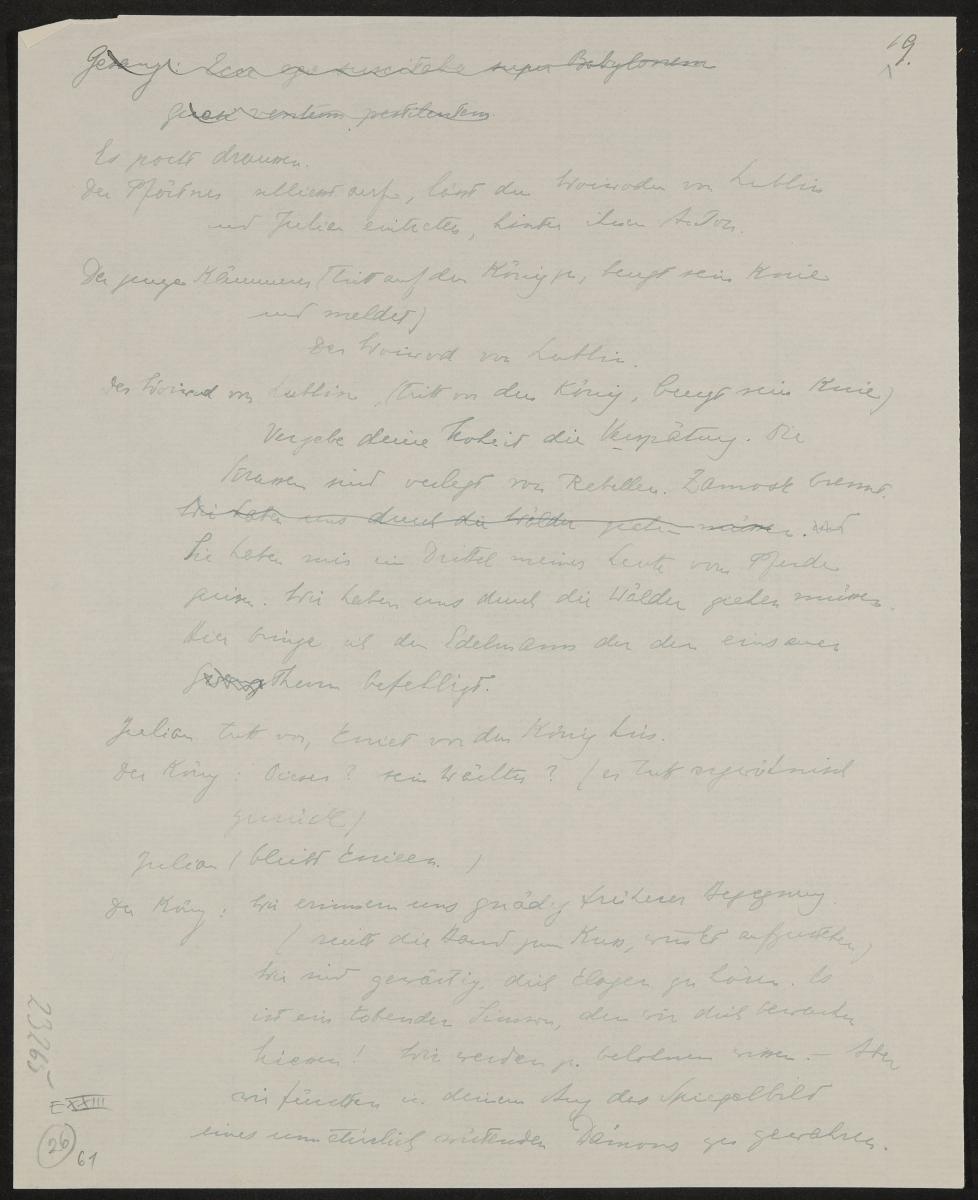 19.
Gesang: Ecce ego suscitabo super Babylonem
quasi ventum pestilentem
Es pocht draussen.
Der Pförtner schliesst auf, lässt den Woiwoden von Lublin
und Julian eintreten, hinter ihnen Anton.
Der junge Kämmerer (tritt auf den König zu, beugt sein Knie
und meldet)
Der Woiwod von Lublin.
Der Woiwod von Lublin (tritt vor den König, beugt sein Knie)
Vergebe deine Hoheit die Verspätung. Die
Strassen sind verlegt von Rebellen. Zamosk brennt.
Wir haben uns durch die Wälder ziehen müssen. und
Sie haben mir ein Drittel meiner Leute vom Pferde
Wir haben uns durch die Wälder ziehen müssen.
Hier bringe ich den Edelmann der den einsamen
Thurm befehligt.
Julian tritt vor, kniet vor den König hin.
Der König: Dieser? sein Wächter? (er tritt argwöhnisch
zurück)
Julian (bleibt knieen)
Der König: Wir erinnern uns gnädig früherer Begegnung
(reicht die Hand zum Kuss, winkt aufzustehen)
Wir sind gewärtig, dich klagen zu hören. Es
ist ein tobender Simson, den wir dich bewachen
hiessen! Wir werden zu belohnen wissen. – Aber
wir fürchten in deinem Aug das Spiegelbild
eines unnatürlich wütenden Dämons zu gewahren.
23265
E XXIII
26
61